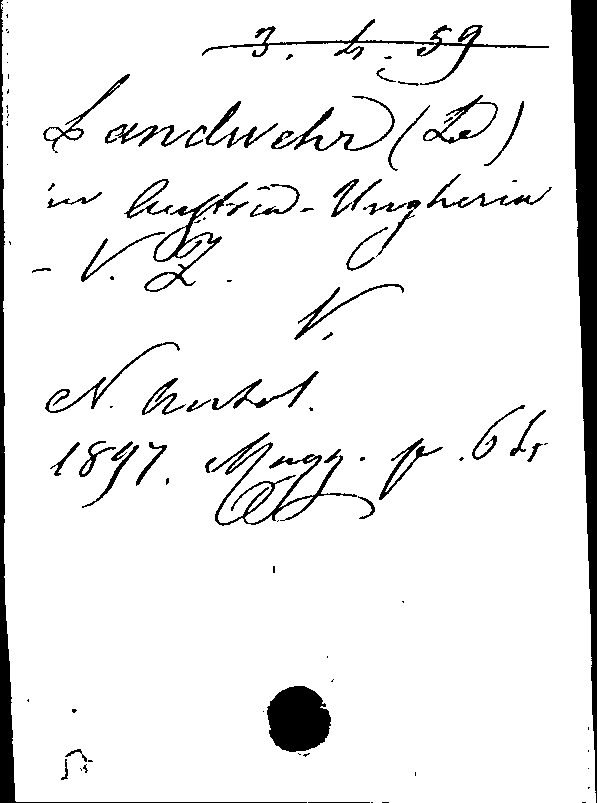 3. 4. 59
Landwehr (La)
in Austria-Ungheria
- V. Z.
V.
N. Antol.
1897. Magg. p. 64